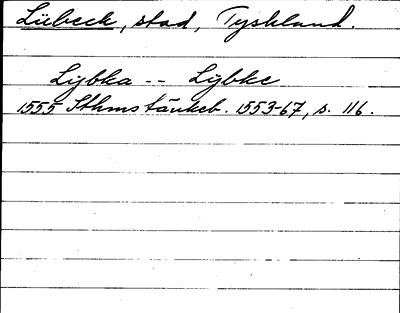 Lübeck, stad, Tyskland.
Lybka -- Lybke
1555 Sthms tänkeb. 1553-67, s. 116.